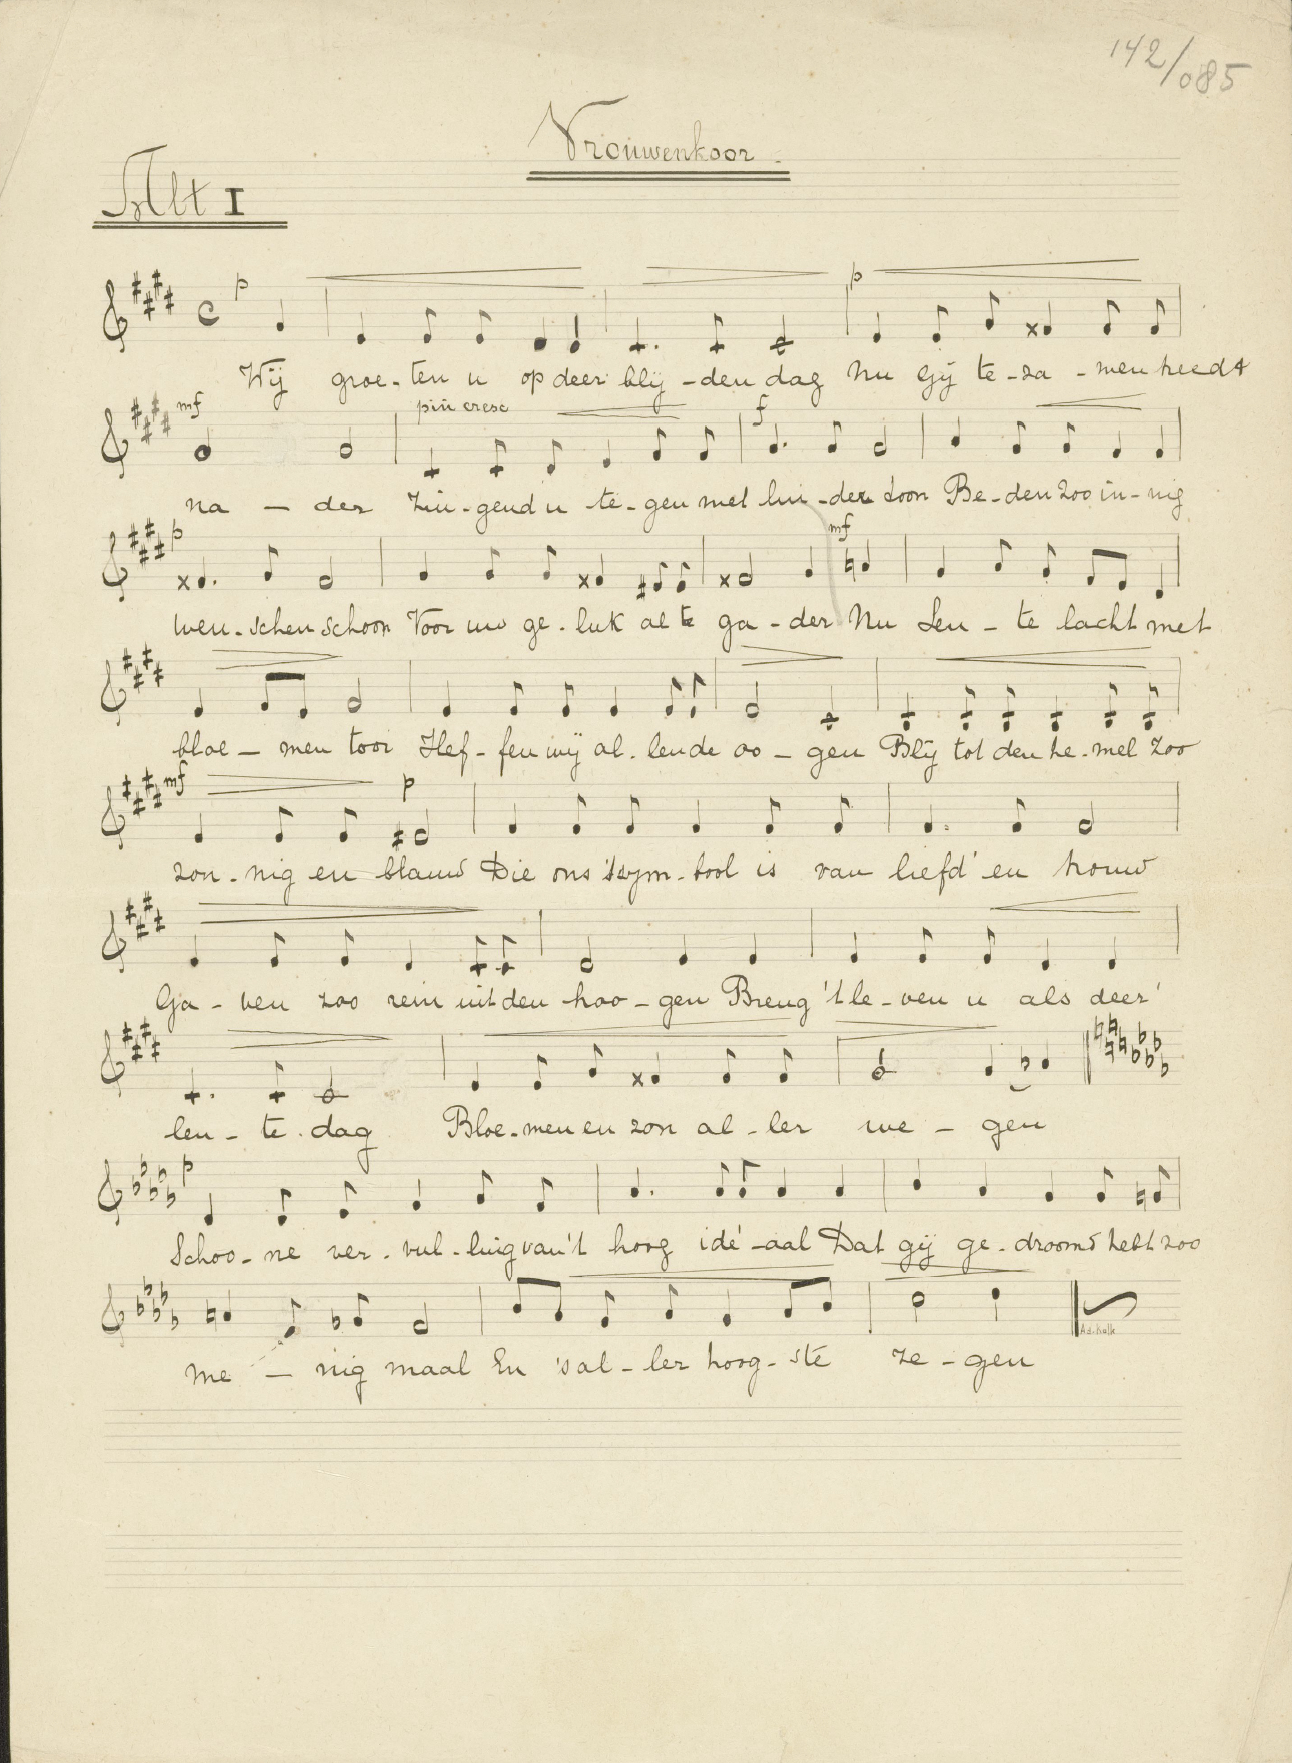 142/085
Vrouwenkoor.
Alt I
p p
Wij groe-ten u op deez' blij-den dag Nu Gij te-za-men treedt
mf piu cresc f
na — der Zin-gend u te-gen met lui-der toon Be-den zoo in-nig
p mf
wen-schen schoon Voor uw ge-luk al te ga-der Nu Len-te lacht met
bloe — men tooi Hef-fen wij al-len de oo-gen Blij tot den he-mel zoo
mf p
zon-nig en blauw Die ons 't sym-bool is van liefd' en trouw
Ga-ven zoo rein uit den hoo-gen Breng 't le-ven u als deez'
len-te-dag Bloe-men en zon al-ler we-gen
p
Schoo-ne ver-vul-ling van 't hoog idé-aal Dat gij ge-droomd hebt zoo
me — nig maal En 's al-ler hoog-ste ze-gen